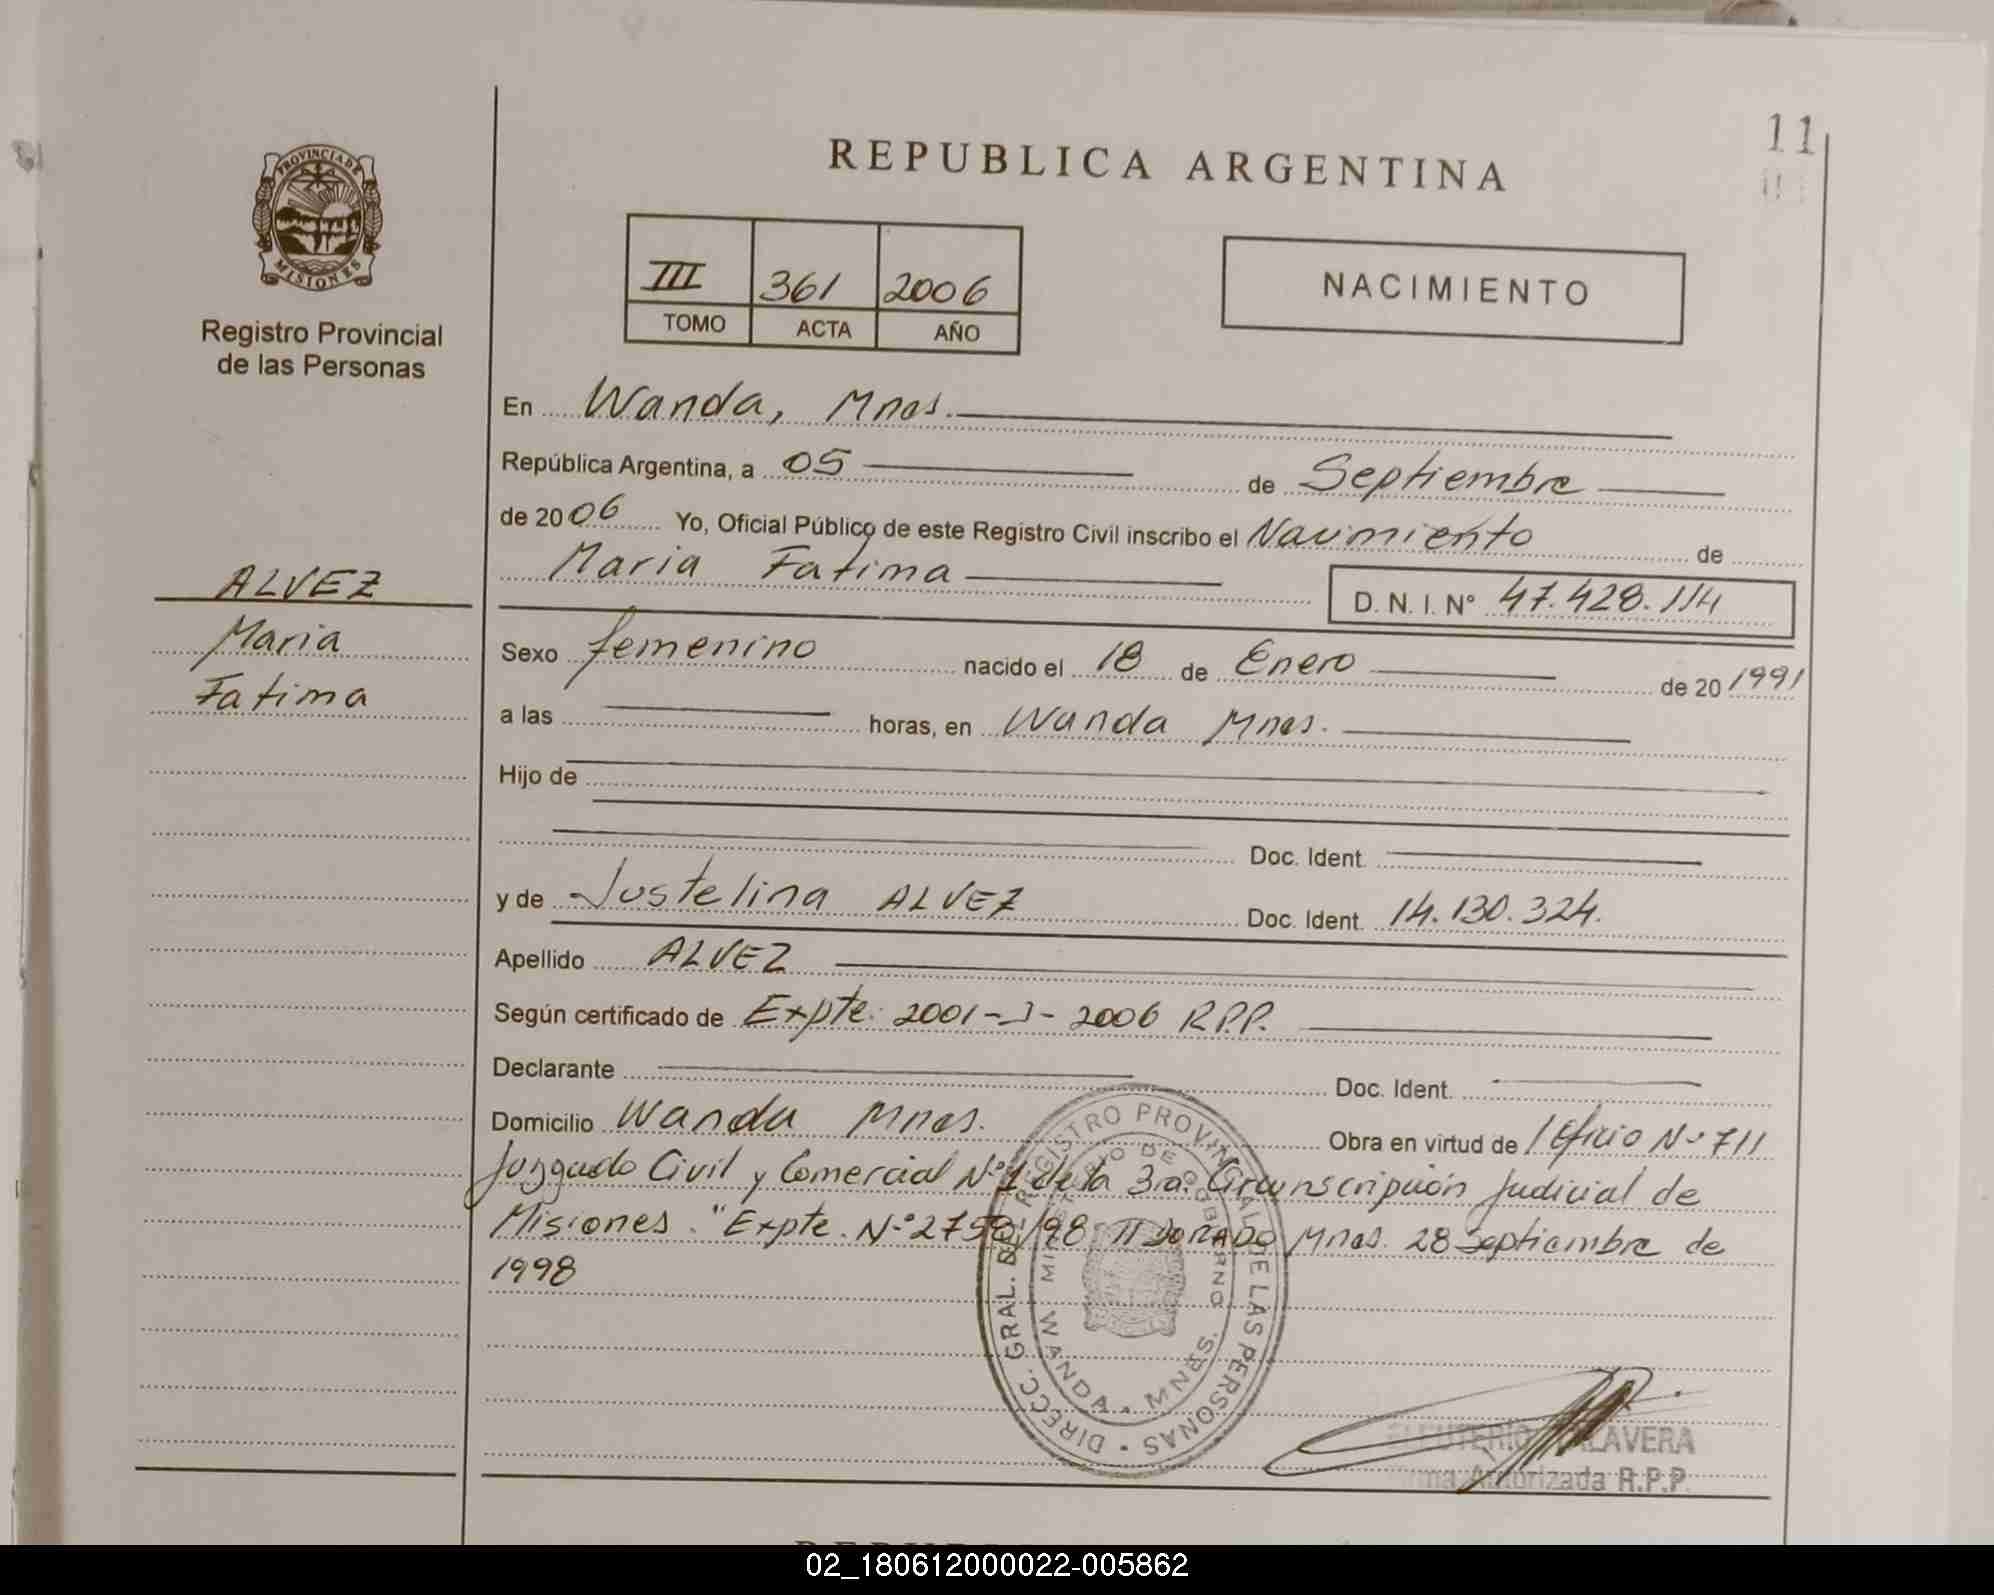 11
PROVINCIA DE
MISIONES
Registro Provincial
de las Personas
ALVEZ
Maria
Fatima
REPUBLICA ARGENTINA
III 361 2006
TOMO ACTA AÑO
NACIMIENTO
En Wanda, Mnes.
República Argentina, a 05 de Septiembre
de 2006 Yo, Oficial Público de este Registro Civil inscribo el Nacimiento de
Maria Fatima D. N. I. Nº 47.428.114
Sexo femenino nacido el 18 de Enero de 20 1991
a las horas, en Wanda Mnes.
Hijo de
Doc. Ident.
y de Justelina ALVEZ Doc. Ident. 14.130.324.
Apellido ALVEZ
Según certificado de Expte. 2001-J-2006 R.P.P.
Declarante Doc. Ident.
Domicilio Wanda Mnes. Obra en virtud de Oficio Nº 711
Juzgado Civil y Comercial Nº 1 de la 3ra. Circunscripción Judicial de
Misiones. "Expte. Nº /98 DORADO Mnes. 28 Septiembre de
1998
DIRECC. GRAL. DEL REGISTRO PROVINCIAL DE LAS PERSONAS
MINISTERIO DE GOBIERNO
WANDA • MNES.
ELEUTERIO TALAVERA
Firma Autorizada R.P.P.
02_180612000022-005862